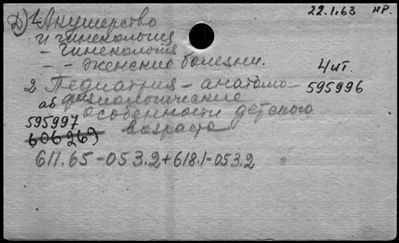 22.1.63 нр.
Д) 1. Акушерство
и гинекология
- гинекология
- - женские болезни.
4 шт.
2. Педиатрия - анатомо- 595996
об физиологические
595997 особенности детского
606269 возраста
611.65-053.2+618.1-053.2